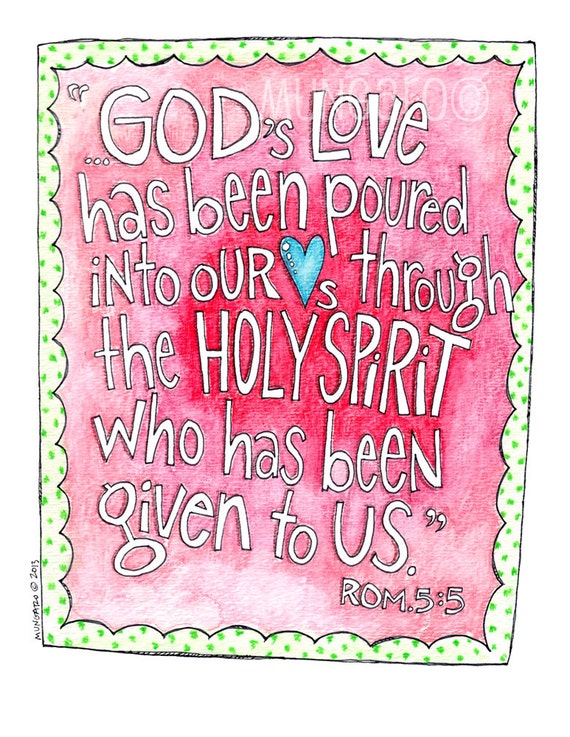 MUNGATO©
"...GOD's LOVE
has been poured
iNto OUR ♥s through
the HOLY SPiRiT
who has beeN
given to US."
ROM.5:5
MUNGATO © 2013